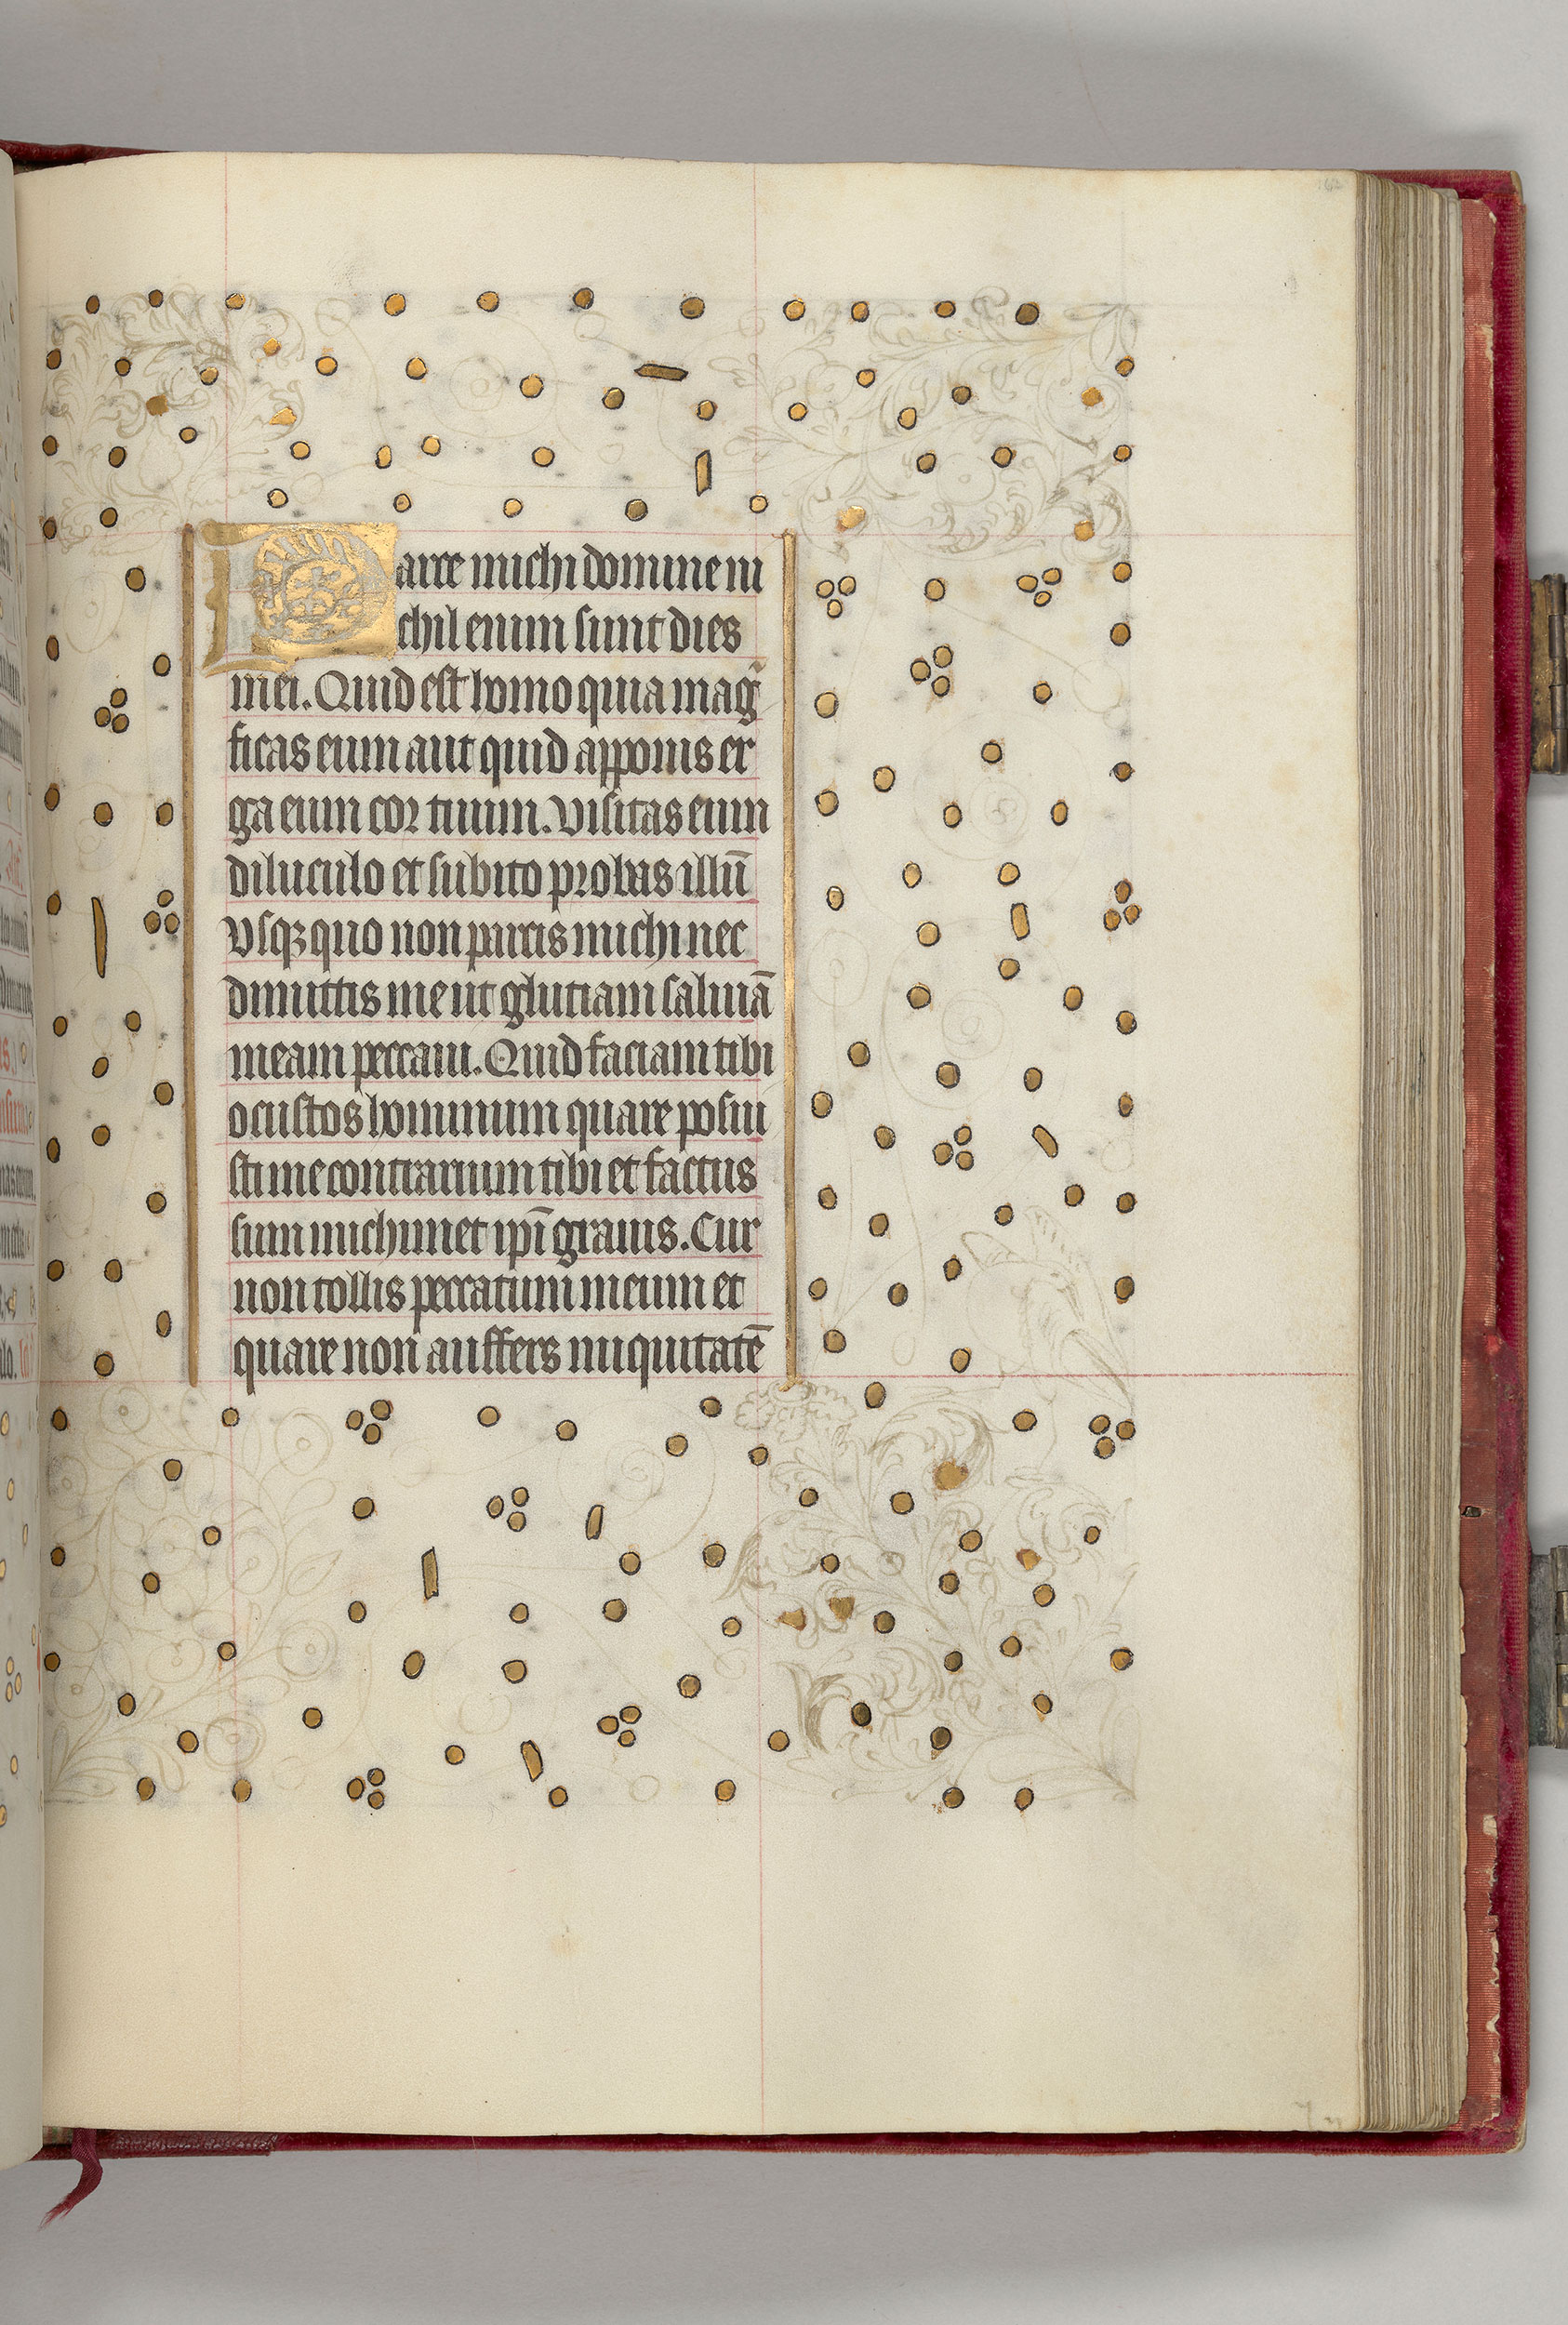 Parce michi domine ni
chil enim sunt dies
mei. Quid est homo quia mag̃
ficas eum aut quid apponis er
ga eum cor tuum. Visitas eum
diluculo et subito probas illū
Vsqꝫ quo non parcis michi nec
dimittis me ut glutiam saliuā
meam peccaui. Quid faciam tibi
o custos hominum quare posui
sti me contrarium tibi et factus
sum michimet ip̄i grauis. Cur
non tollis peccatum meum et
quare non auffers iniquitatē